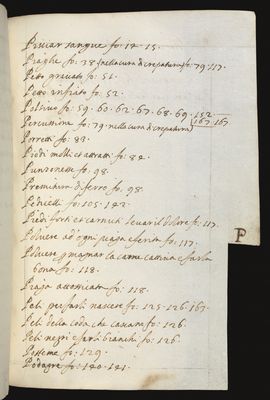 Pisciar sangue fo: 14. 15.
Piaghe fo: 38 (nella cura di crepatura) fo: 79. 117.
Petto gravato fo: 51.
Petto infiato fo: 52.
Polsivo fo: 59. 60. 62. 67. 68. 69. 152.
Percussione fo: 79. nella cura di crepatura) 167. 167
Porretti fo: 83.
Piedi molli et attratti fo: 84.
Puntonette fo: 98.
Premitura di ferro fo: 98.
Pedicelli fo: 105. 122.
Piedi forti et carnuti levar il dolore fo: 117.
Polvere ad ogni piaga e ferita fo: 117.
P
Polvere p magnar la carne cattiva e farla
bona fo: 118.
Piaga fo: 118.
Peli per farli nascere fo: 125. 126. 167.
Peli della coda che cascano fo: 126.
Peli negri e farli bianchi fo: 126.
Posteme fo: 129.
Podagre fo: 140. 141.